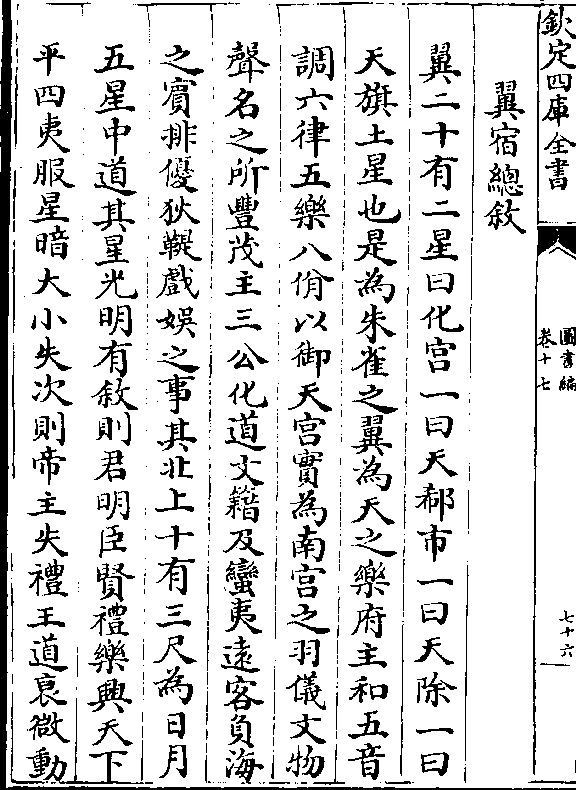 欽定四庫全書
圖書編
卷十七
七十六
翼宿總敘
翼二十有二星曰化宫一曰天郗市一曰天除一曰
天旗土星也是為朱雀之翼為天之樂府主和五音
調六律五樂八佾以御天宫實為南宫之羽儀文物
聲名之所豐茂主三公化道文籍及蠻夷逺客負海
之賓排優狄鞮戲娯之事其北上十有三尺為日月
五星中道其星光明有敘則君明臣賢禮樂興天下
平四夷服星暗大小失次則帝主失禮王道衰微動